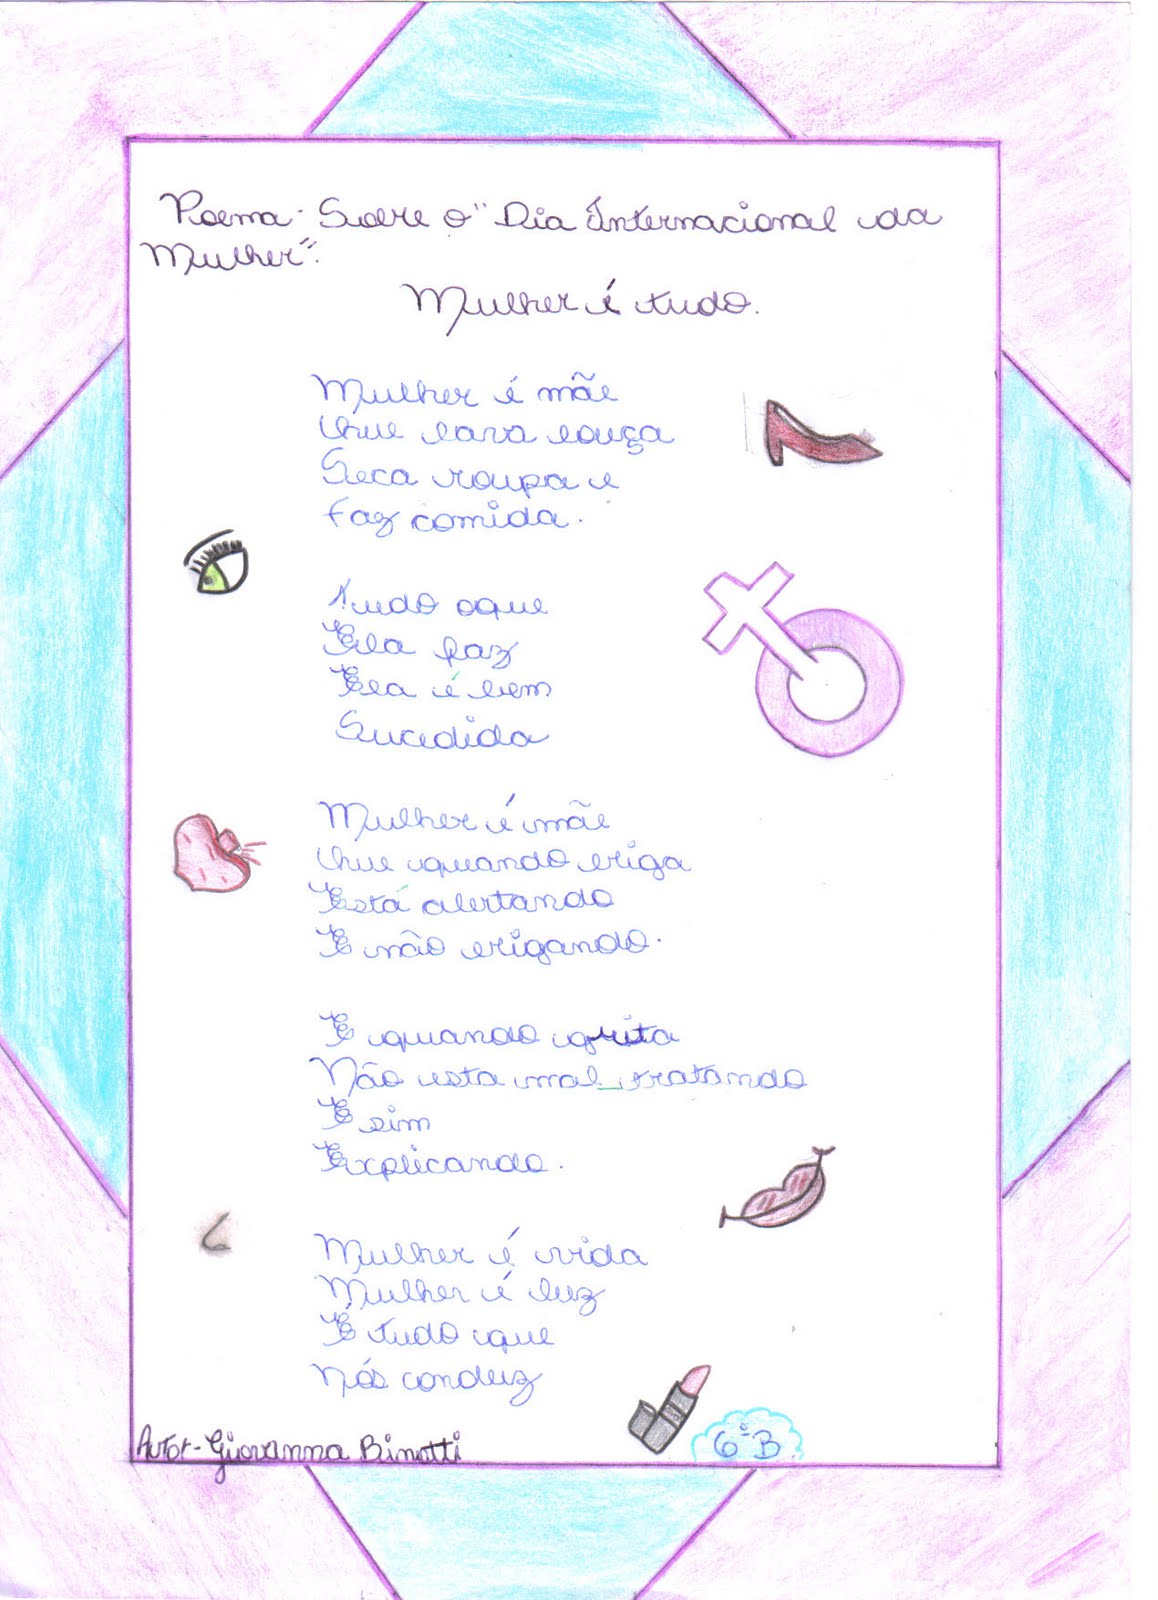 Poema - Sobre o " Dia Internacional da
Mulher".
Mulher é tudo.
Mulher é mãe
Que lava louça
Seca roupa e
faz comida.
Tudo oque
Ela faz
Ela é bem
Sucedida
Mulher é mãe
Que quando briga
Está alertando
E não brigando.
E quando grita
Não esta mal_tratando
E sim
Explicando.
Mulher é vida
Mulher é luz
É tudo que
Nós conduz
Autor - Giovanna Binotti
6º B